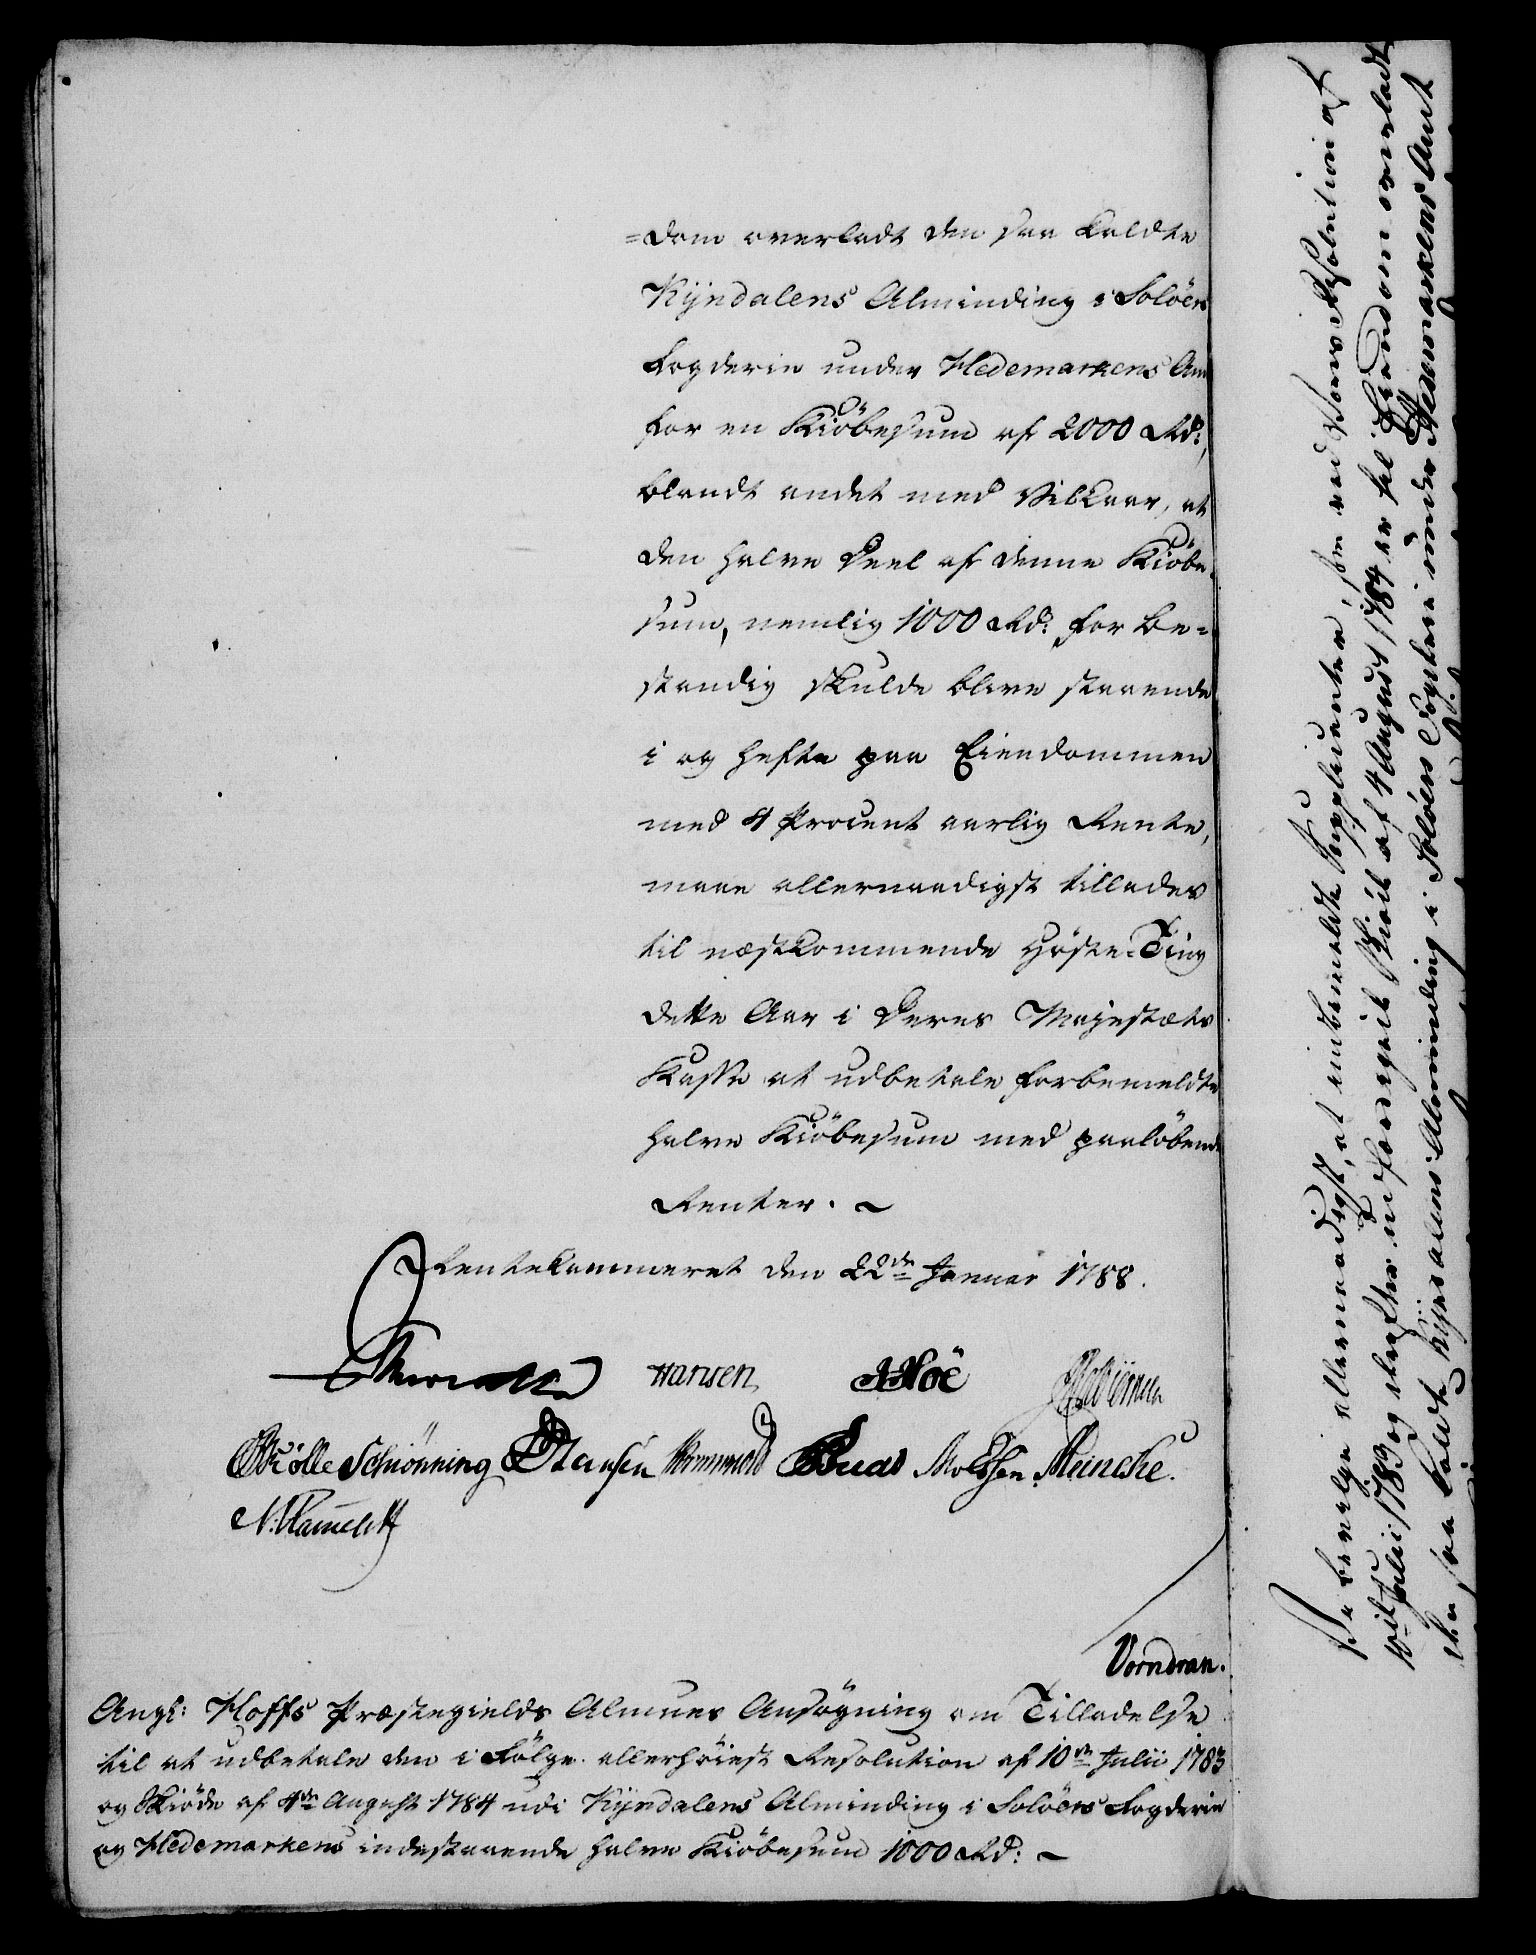 =dom overladt den saa kaldte
Kÿndalens Alminding i Soløers
Fogderie under Hedemarkens Amt
for en Kiøbesum af 2000 Rd:,
blandt andet med Vilkaar, at
den halve Deel af denne Kiøbe-
sum, nemlig 1000 Rd: for be=
standig skulde blive staaende
i og hefte paa Eiendommen
med 4 Procent aarlig Rente,
maae allernaadigst tillades
til næstkommende Høste-Ting
dette Aar i Deres Majestæts
Kasse at udbetale forbemeldte
halve Kiøbesum med paaløbende
Renter. ~
Rentekammeret den 22de Januar 1788.
Hansen
Schiønning
Meincke.
Vorndran.
Angl: Hoffs Præstegields Almues Ansøgning om Tilladelse
til at udbetale den i Følge allerhøiest Resolution af 10de Julii 1783
og Skiøde af 4de August 1784 udi Kÿndalens Alminding i Soløers Fogderie
og Hedemarkens indestaaende halve Kiøbesum 1000 Rd: ~
Vi bevilge allernaadigst, at indbemeldte Supplicanter, som ved Vores Resolution af
10de Julii 1783 og derefter udfærdiget Skiøde af 4 August 1784 er til Eiendom overladt
den saa kaldte Kÿndalens Alminding i Soløers Fogderie under Hedemarkens Amt